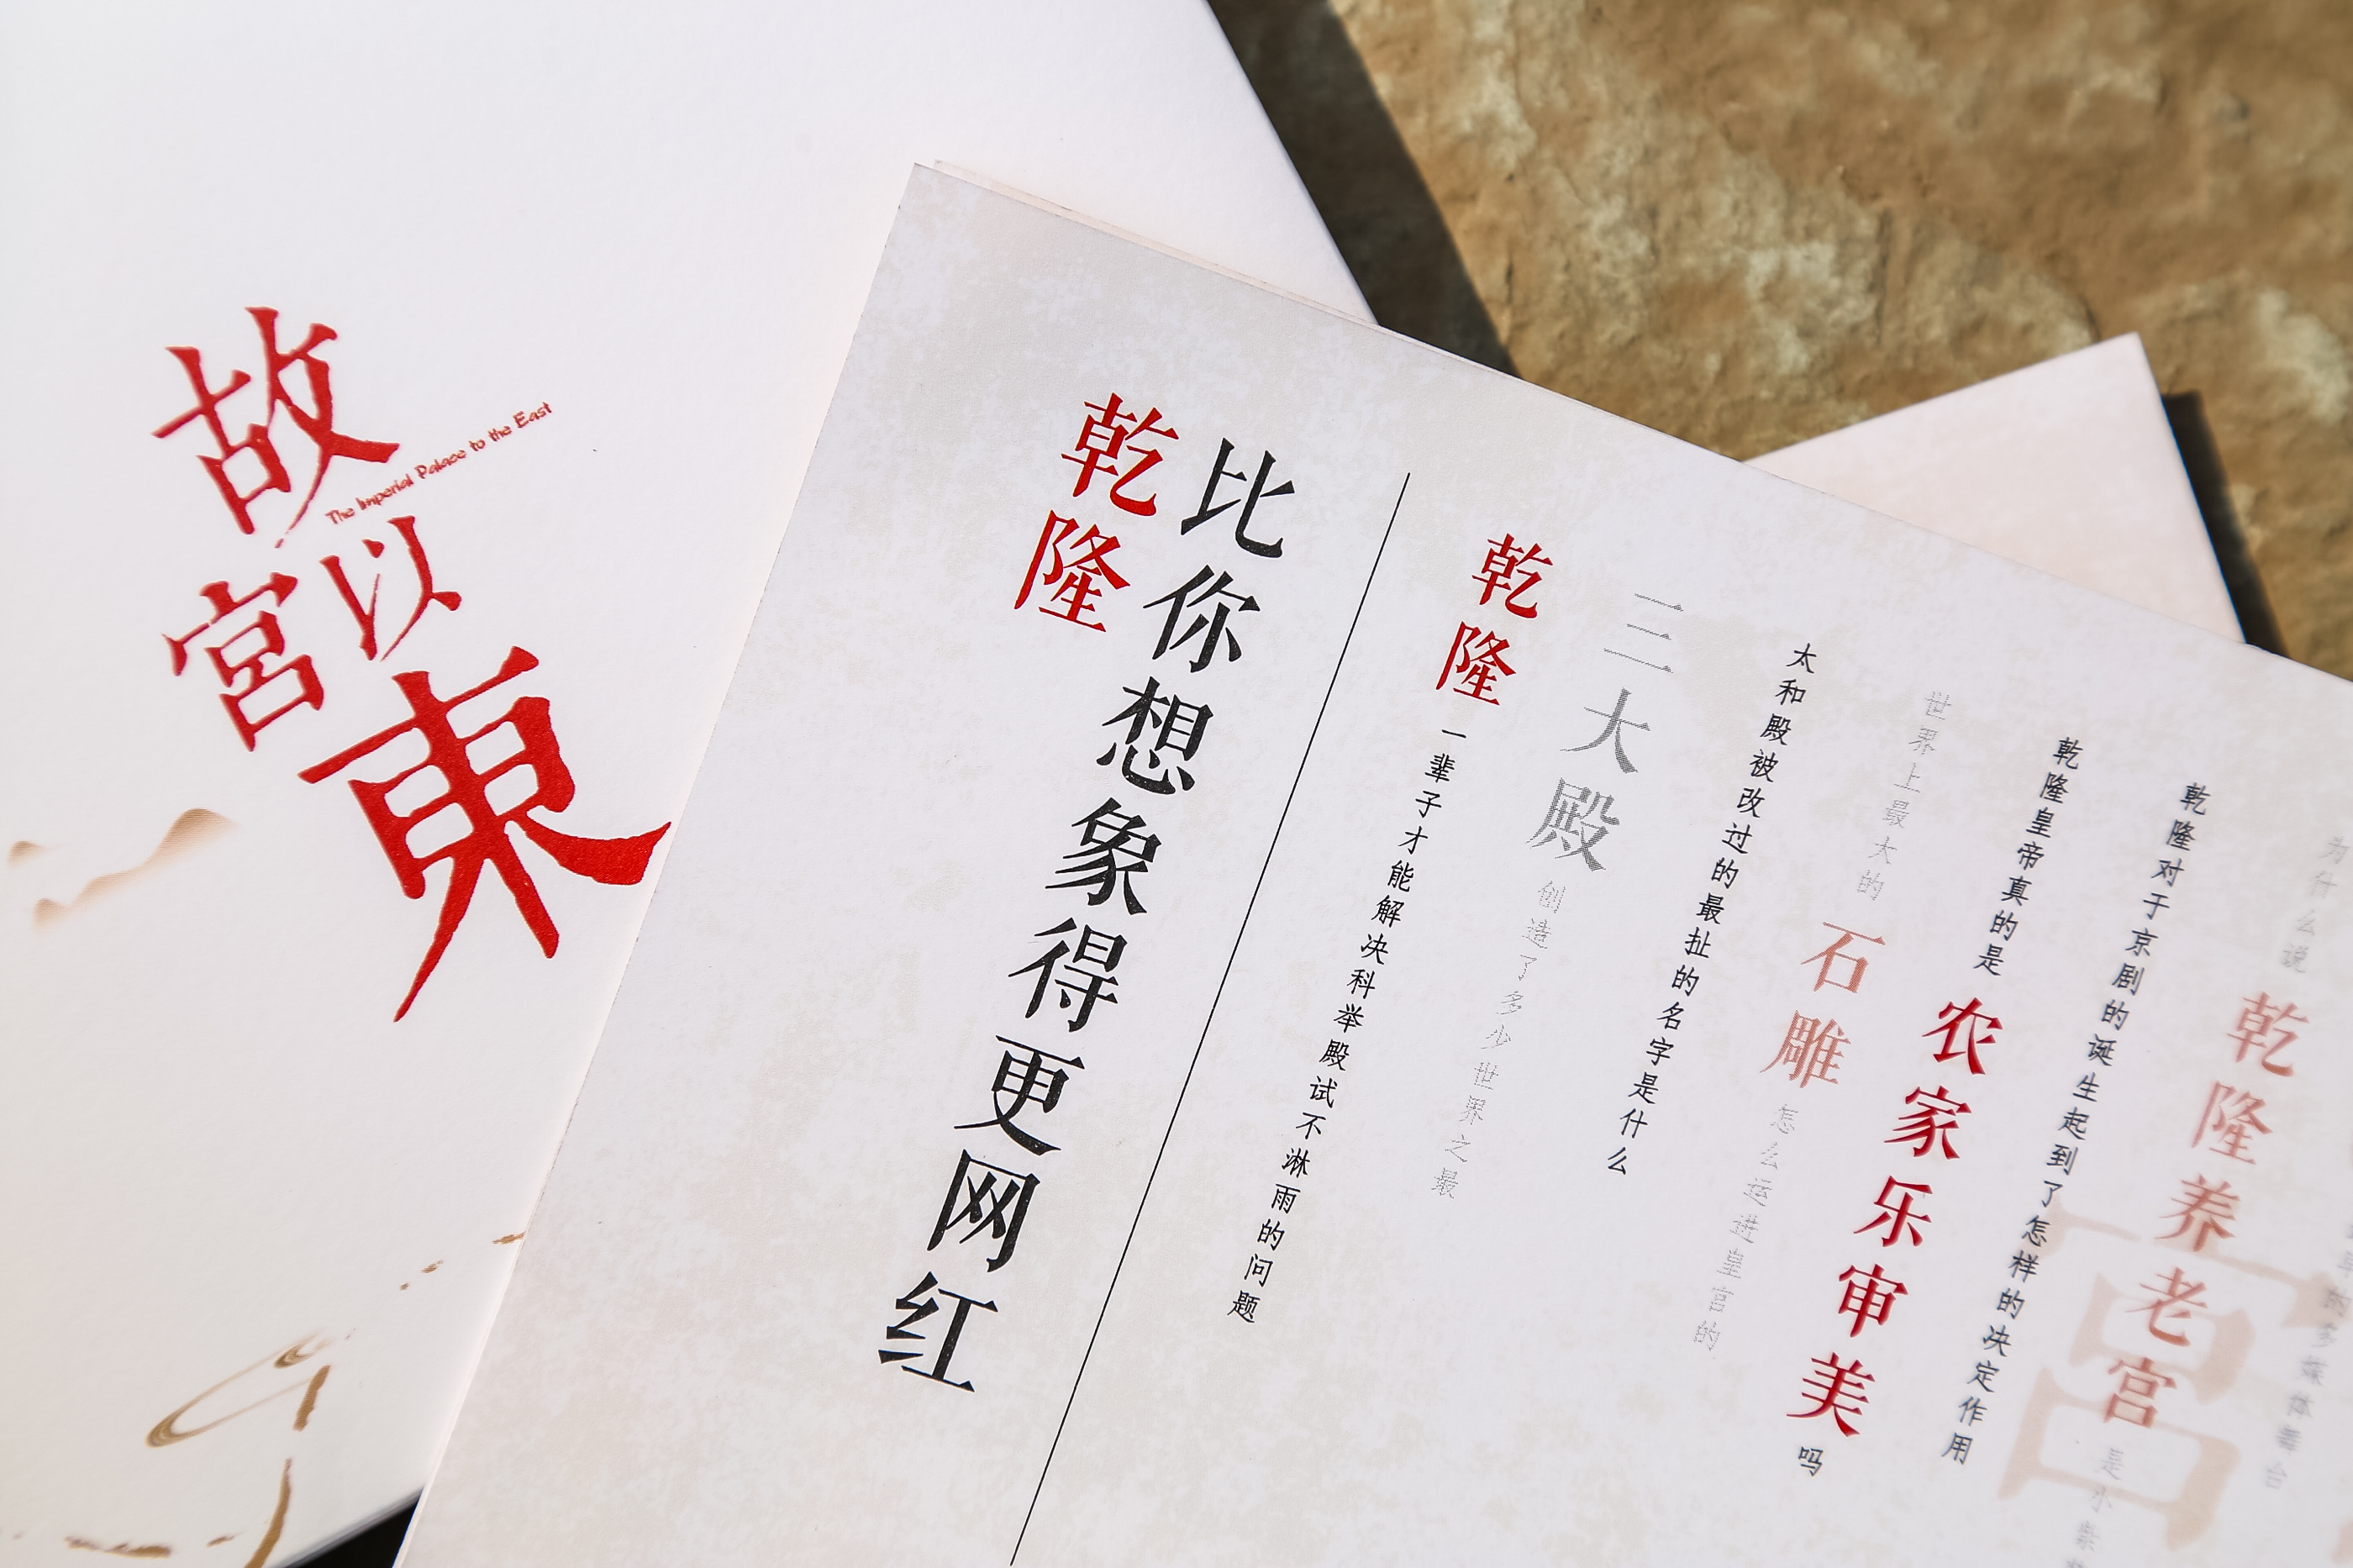 故宮
以東
The Imperial Palace to the East
乾隆
比你想象得更网红
乾隆一辈子才能解决科举殿试不淋雨的问题
三大殿创造了多少世界之最
太和殿被改过的最扯的名字是什么
世界上最大的石雕怎么运进皇宫的
乾隆皇帝真的是农家乐审美吗
乾隆对于京剧的诞生起到了怎样的决定作用
为什么说乾隆养老宫是小紫
多媒体舞台